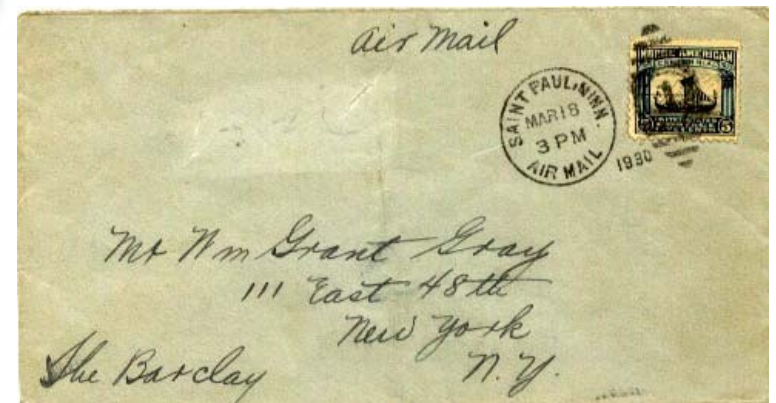 Air Mail
SAINT PAUL, MINN.
MAR 18
3 PM
AIR MAIL
1930
NORSE-AMERICAN
CENTENNIAL
UNITED STATES
5
Mr Wm Grant Gray
111 East 48th
New York
N.Y.
The Barclay